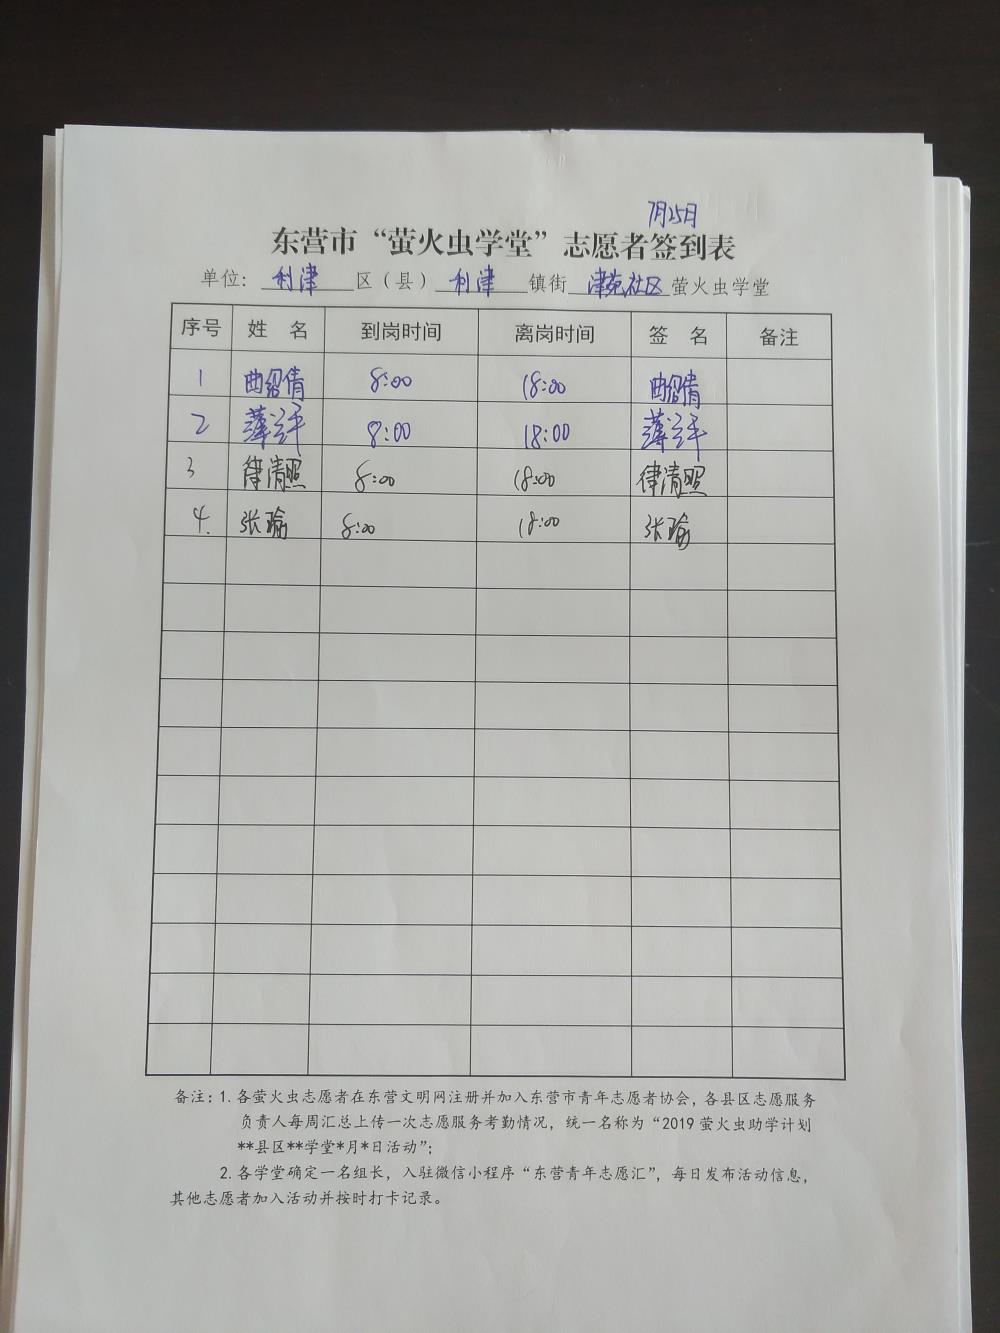 7月25日
东营市“萤火虫学堂”志愿者签到表
单位: 利津 区(县) 利津 镇街 津苑社区 萤火虫学堂
序号 姓 名 到岗时间 离岗时间 签 名 备注
1 曲绍倩 8:00 18:00 曲绍倩
2 薄兰平 8:00 18:00 薄兰平
3 律清照 8:00 18:00 律清照
4. 张瑜 8:00 18:00 张瑜
备注:1. 各萤火虫志愿者在东营文明网注册并加入东营市青年志愿者协会,各县区志愿服务
负责人每周汇总上传一次志愿服务考勤情况,统一名称为“2019 萤火虫助学计划
**县区**学堂*月*日活动”;
2. 各学堂确定一名组长,入驻微信小程序“东营青年志愿汇”,每日发布活动信息,
其他志愿者加入活动并按时打卡记录。